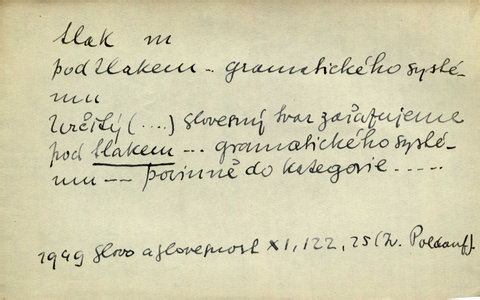 tlak m
pod tlakem .. gramatického systé-
mu
Určitý (....) slovesný tvar zařaďujeme
pod tlakem --- gramatického systé-
mu --- povinně do kategorie .....
1949 Slovo a slovesnost XI, 122, 25 (Iv. Poldauf).